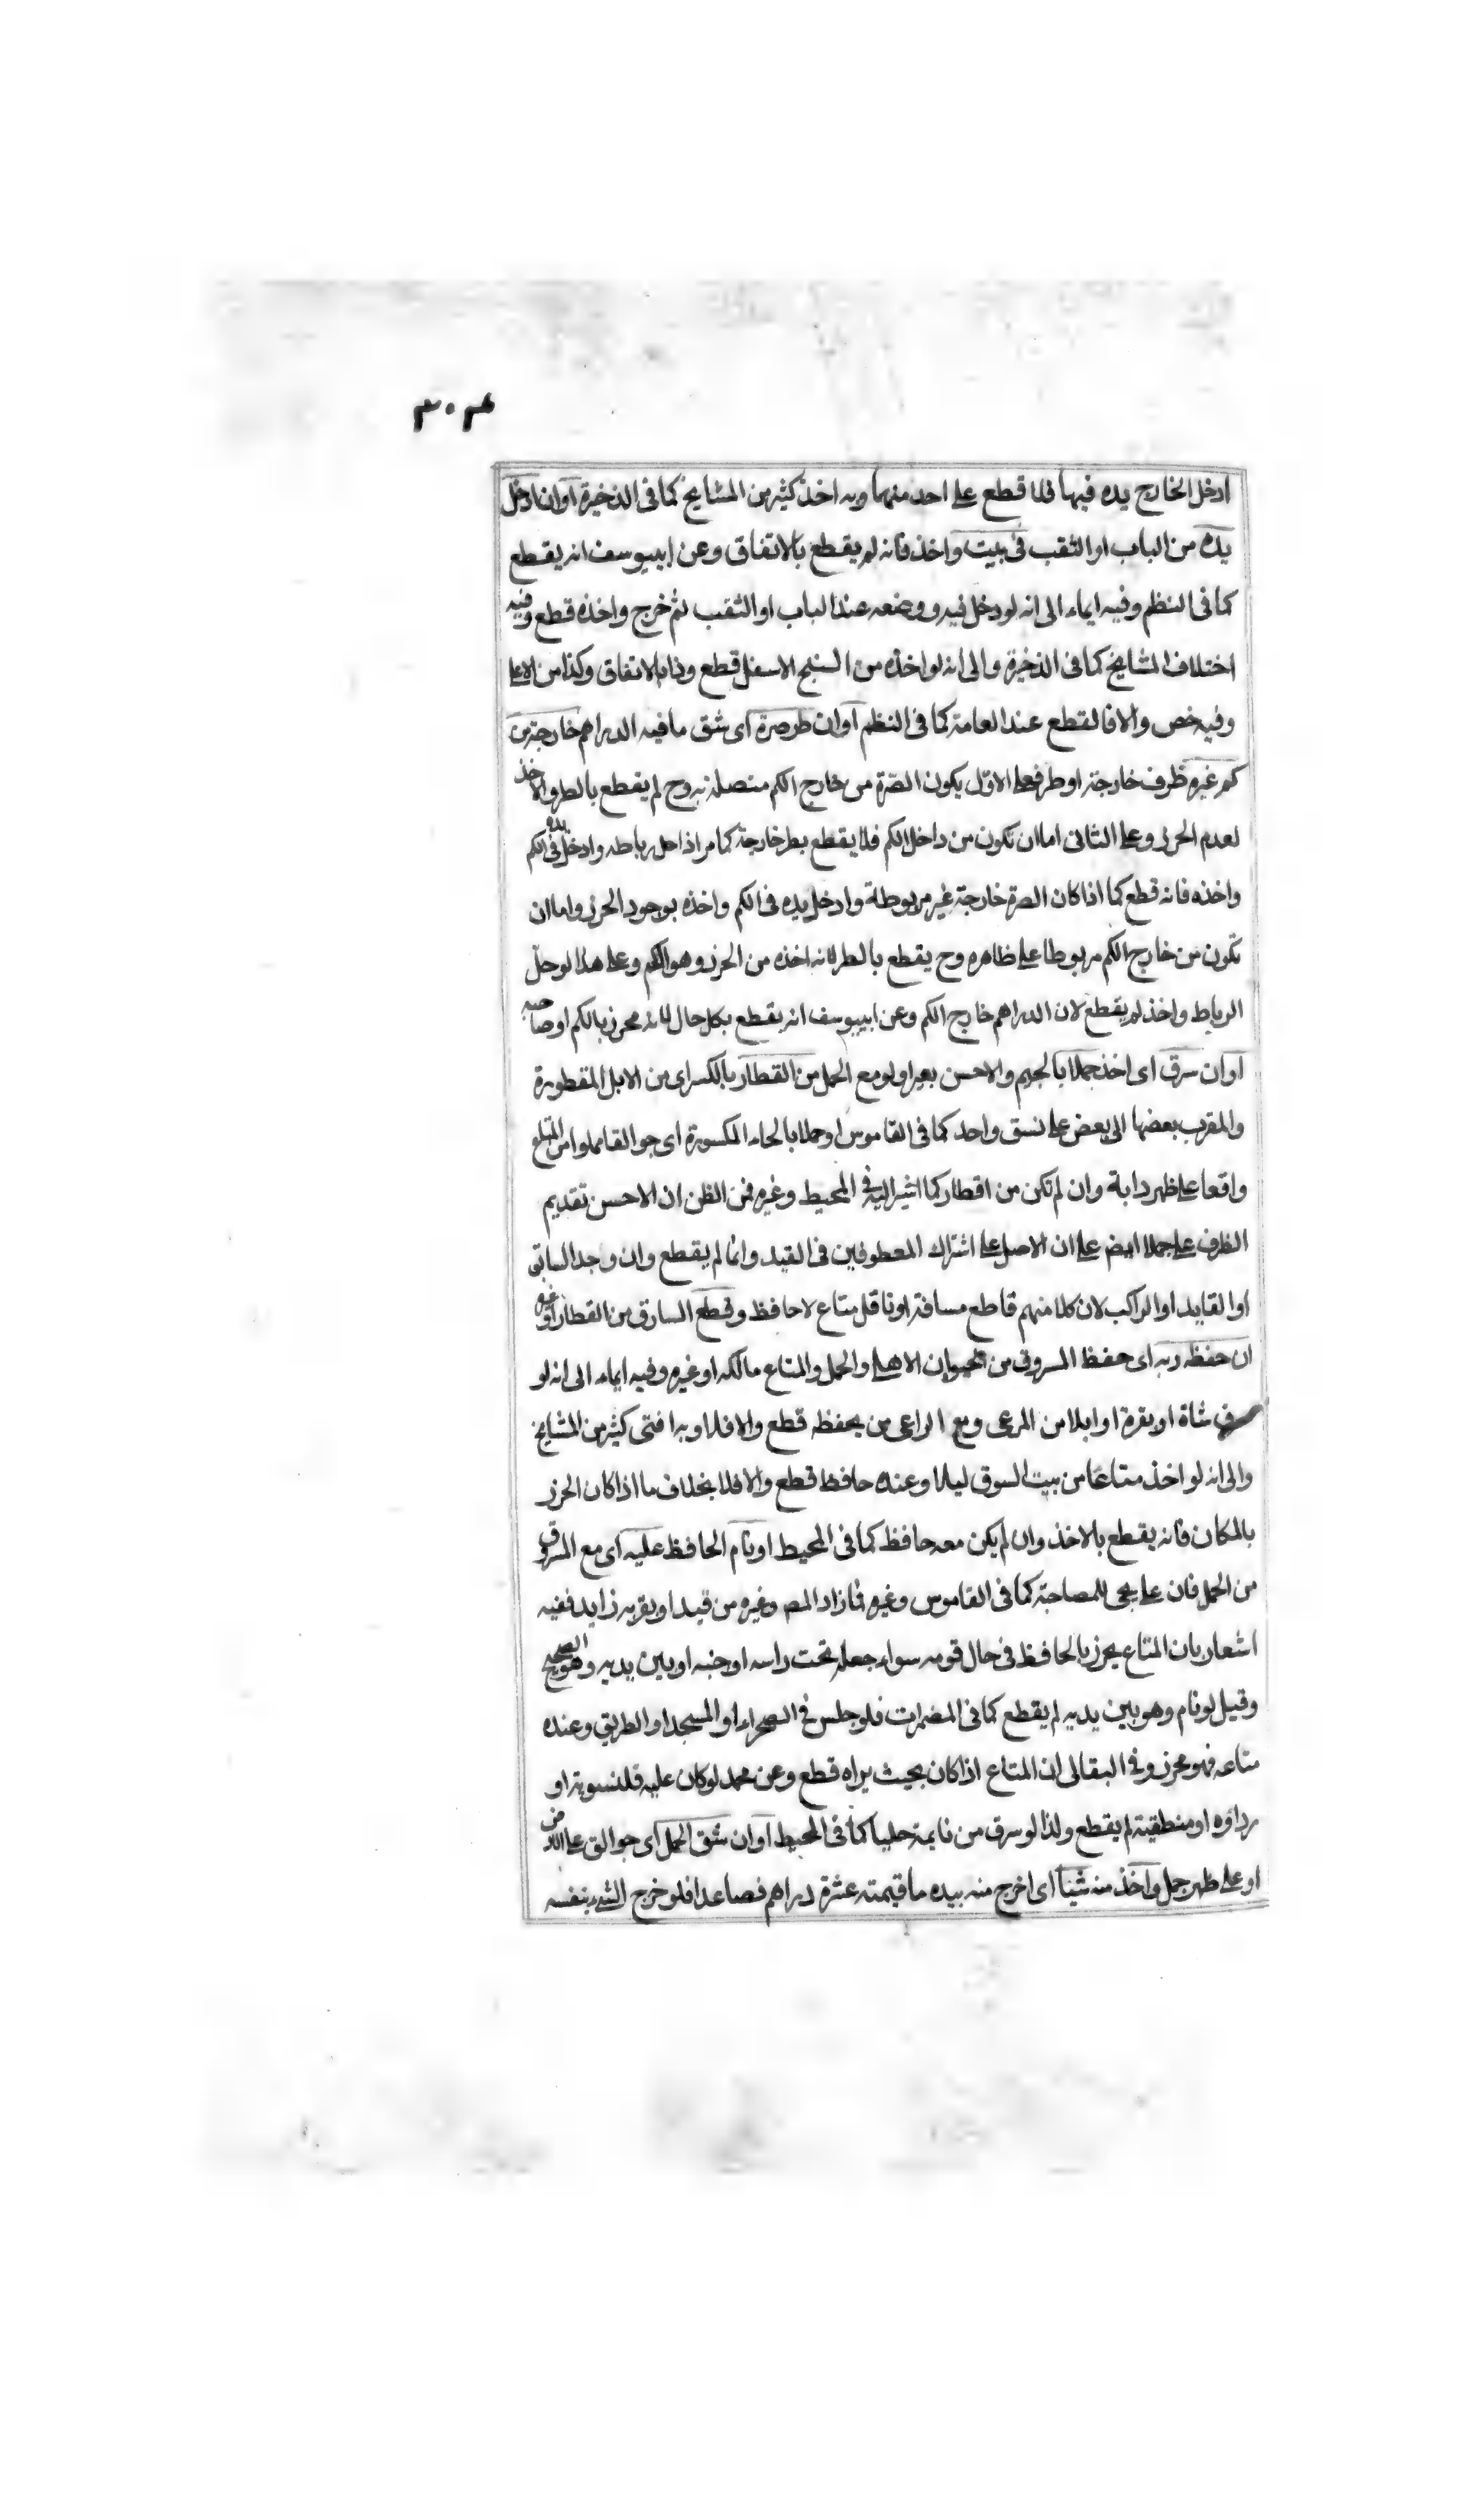 ٣٠٤
ادخل الخارج يده فيها فلا قطع على احد منهما وبه اخذ كثير من المشايخ كما فى الذخيرة اوان ادخل
يده من الباب او الثقب فى بيت واخذ فانه لم يقطع بالاتفاق وعن ابييوسف انه يقطع
كما فى النظم وفيه ايماء الى انه لو دخل فيه ووضعه عند الباب او الثقب ثم خرج واخذه قطع وفيه
اختلاف المشايخ كما فى الذخيرة والى انه لو اخذه من السنج الاسفل قطع وذا بالاتفاق وكذا من الاعلى
وفيه خص والا فالقطع عند العامة كما فى النظم اوان طر صرة اى شق ما فيه الدراهم خارجة من
كم غيره ظرف خارجة او طر فعلى الاول يكون الصرة من خارج الكم متصلة به وح لم يقطع بالطر والاخذ
لعدم الحرز وعلى الثانى اما ان تكون من داخل الكم فلا يقطع بطر خارجة كما مر اذا حل رباطه وادخل يده فى الكم
واخذه فانه قطع كما اذا كان الصرة خارجة غير مربوطة وادخل يده فى الكم واخذه بوجود الحرز واما ان
تكون من خارج الكم مربوطا على ظاهره وح يقطع بالطر لانه اخذه من الحرز وهو الكم وعلى هذا لو حل
الرباط واخذ لم يقطع لان الدراهم خارج الكم وعن ابييوسف انه يقطع بكل حال لانه محرز بالكم او صاحبه
اوان سرق اى اخذ جملا بالجيم والاحسن بعيرا ولو مع الحمل من القطار بالكسر اى من الابل المقطورة
والمقرب بعضها الى بعض على نسق واحد كما فى القاموس او حملا بالحاء المكسورة اى جوالقا مملوا من المتاع
واقعا على ظهر دابة وان لم تكن من اقطار كما اشير اليه فى المحيط وغيره فمن الظن ان الاحسن تقديم
الظرف على جملا ايضم على ان الاصل على اشتراك المعطوفين فى القيد وانما لم يقطع وان وجد السابق
او القايد او الراكب لان كلا منهم قاطع مسافة او ناقل متاع لا حافظ وقطع السارق من القطار او غيره
ان حفظه ربه اى حفظ المسروق من الحيوان الاهلى والحمل والمتاع مالكه او غيره وفيه ايماء الى انه لو
سرق شاة او بقرة او ابلا من المرعى ومع الراعى من يحفظه قطع والا فلا وبه افتى كثير من المشايخ
والى انه لو اخذ متاعا من بيت السوق ليلا وعنده حافظ قطع والا فلا بخلاف ما اذا كان الحرز
بالمكان فانه يقطع بالاخذ وان لم يكن معه حافظ كما فى المحيط او نام الحافظ عليه اى مع المسروق
من الحمل فان على يجى للمصاحبة كما فى القاموس وغيره فما زاد المص وغيره من قيد او بقربه زايد ففيه
اشعار بان المتاع يحرز بالحافظ فى حال قومه سواء جعله تحت راسه او جنبه او بين يديه وهو الصحيح
وقيل لو نام وهو بين يديه لم يقطع كما فى المضمرات فلو جلس فى الصحراء او المسجد او الطريق وعنده
متاعه فهو محرز وفى البقالى ان المتاع اذا كان بحيث يراه قطع وعن محمد لو كان عليه قلنسوته او
رداؤه او منطقيته لم يقطع ولذا لو سرق من نايمة حليا كما فى المحيط اوان شق الحمل اى جوالق على الارض
او على ظهر جمل واخذ منه شيئا اى اخرج منه بيده ما قيمته عشرة دراهم فصاعدا فلو خرج الشىء بنفسه